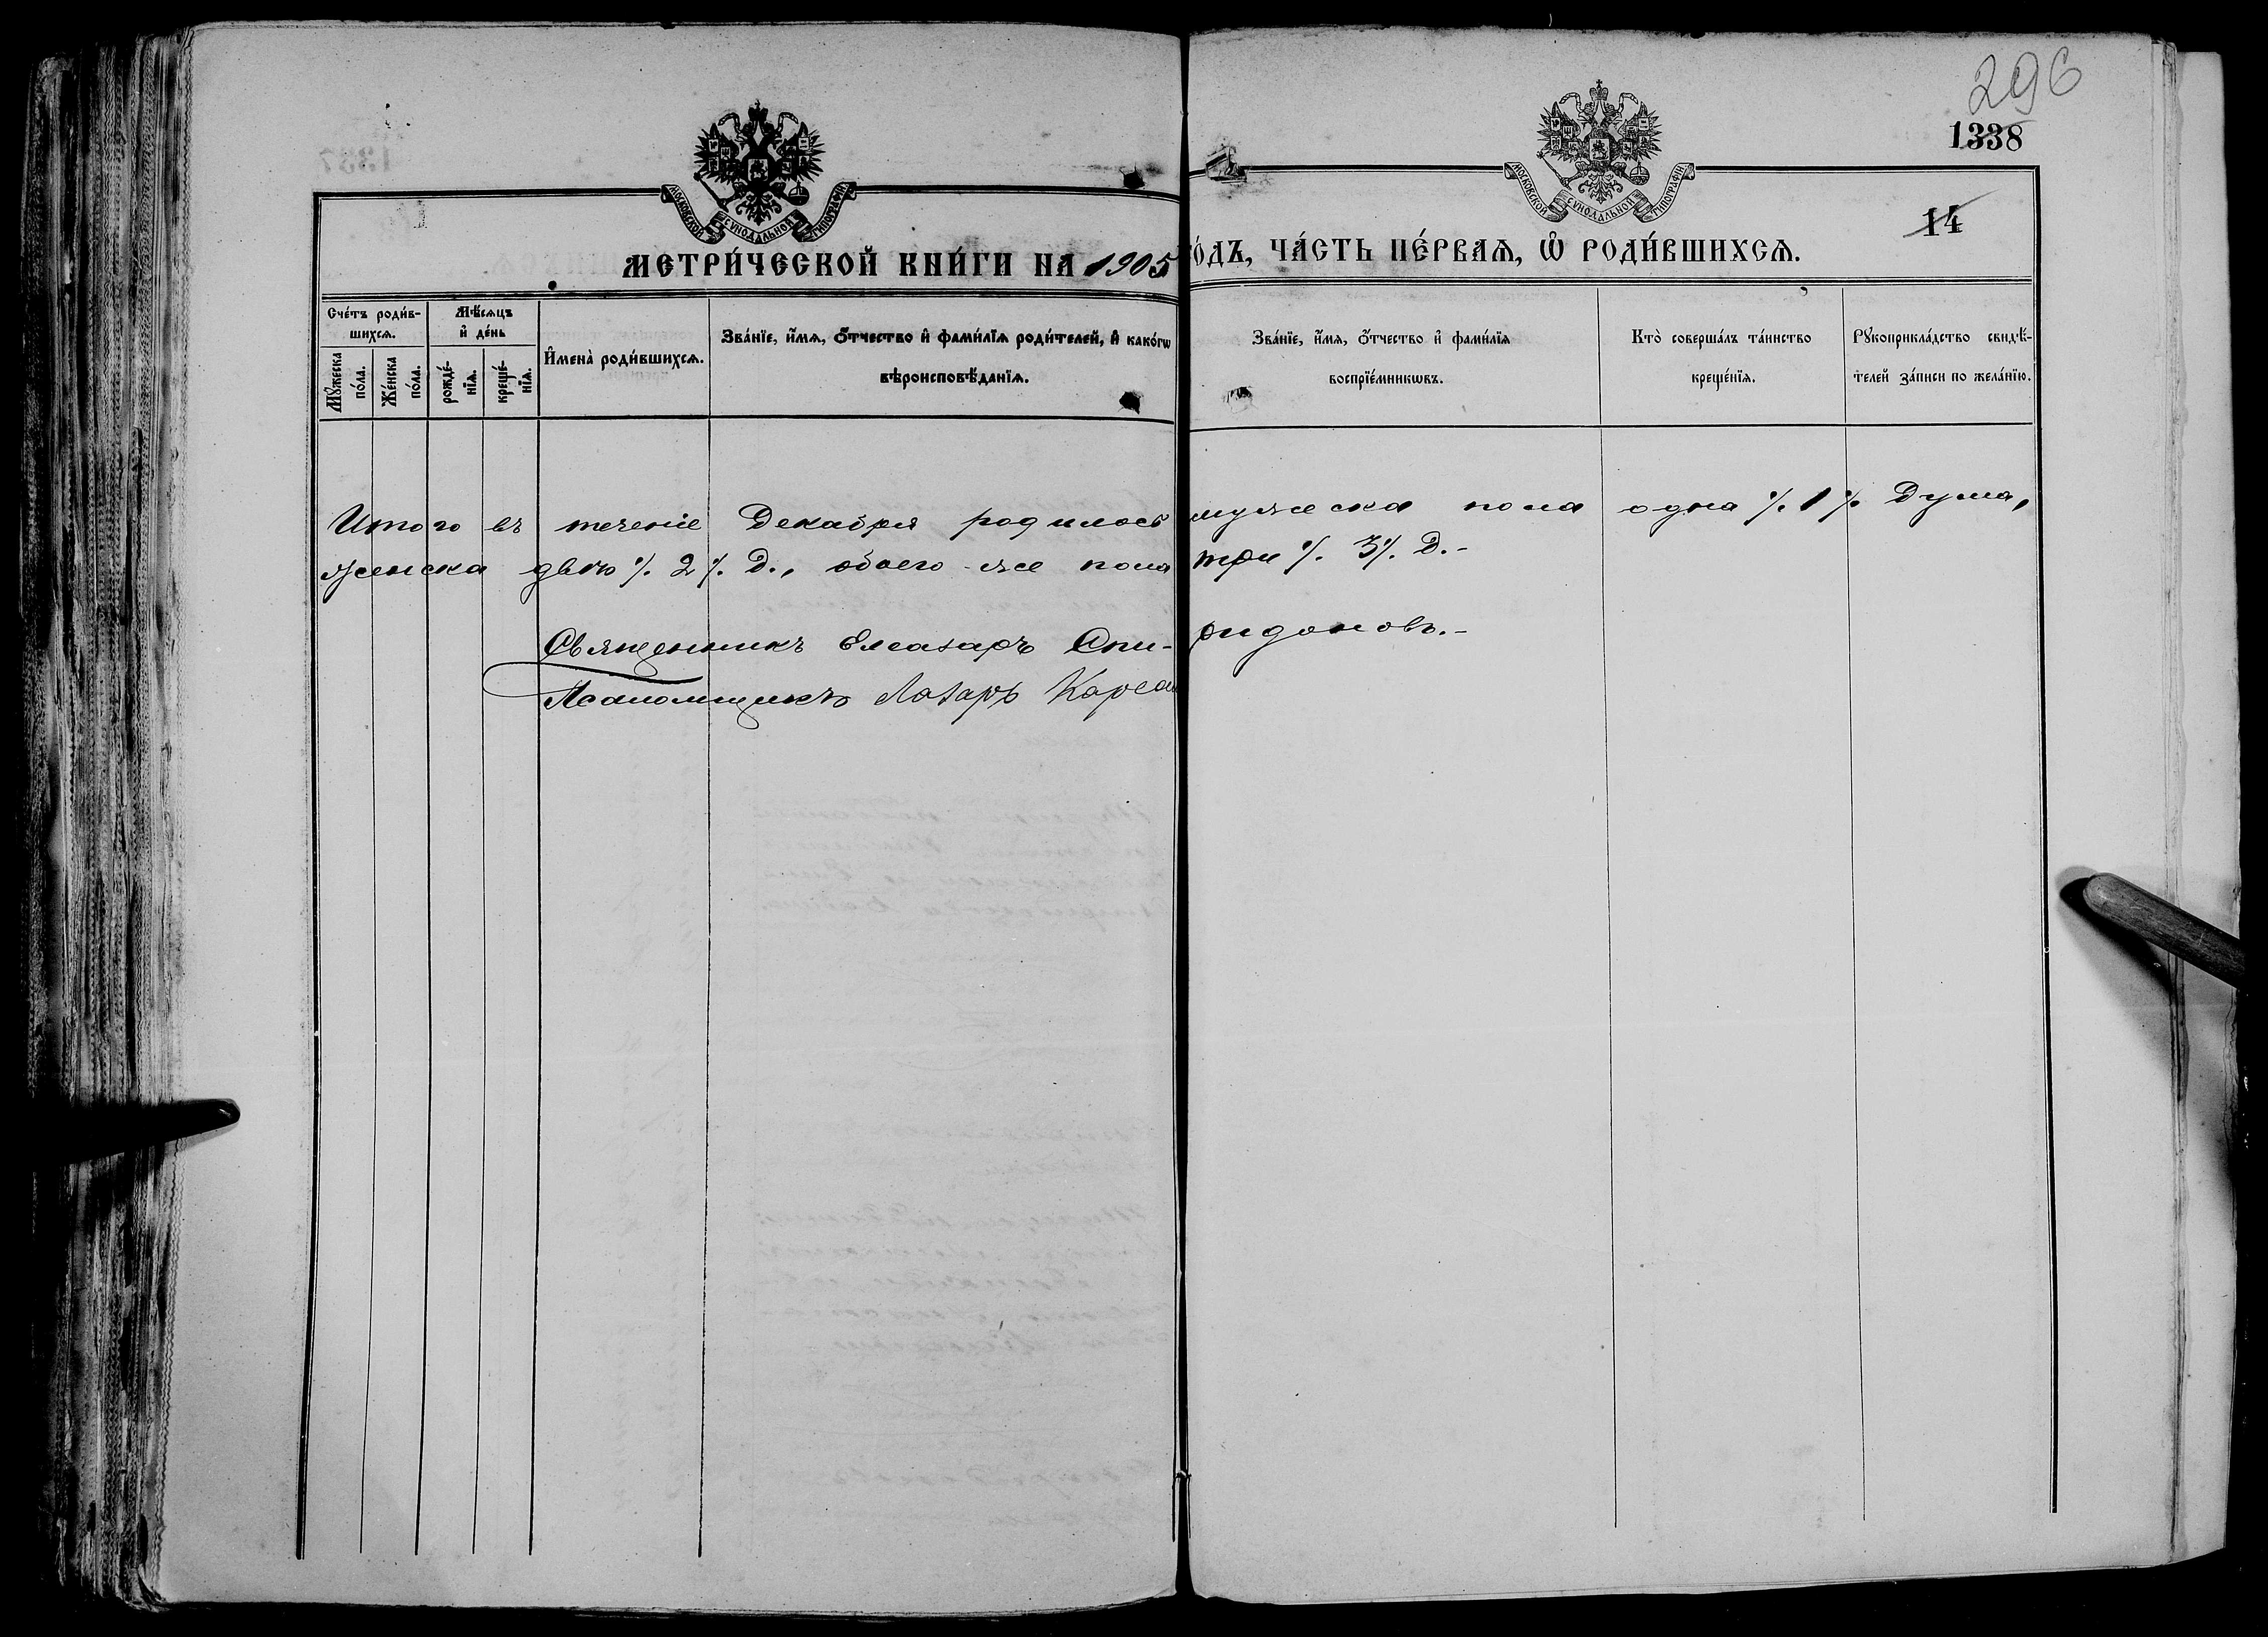 296
1338
14
МОСКОВСКОЙ СѴНОДАЛЬНОЙ ТИПОГРАФІИ
МОСКОВСКОЙ СѴНОДАЛЬНОЙ ТИПОГРАФІИ
МЕТРИ́ЧЕСКОЙ КНИ́ГИ НА 1905 ГО́ДЪ, ЧА́СТЬ ПЕ́РВАѦ, Ѽ РОДИ́ВШИХСѦ.
Сче́тъ роди́в-
шихсѧ.
Мꙋ́жеска по́ла.
Же́нска по́ла.
Мѣ́сѧцъ
и҆ де́нь
рожде́-
нїѧ.
креще́-
нїѧ.
И҆мена̀ роди́вшихсѧ.
Зва́нїе, и҆́мѧ, ѻ҆́тчество и҆ фами́лїѧ роди́телей, и҆ како́гѡ
вѣроисповѣ́данїѧ.
Зва́нїе, и҆́мѧ, ѻ҆́тчество и҆ фами́лїѧ
воспрїе́мникѡвъ.
Кто̀ соверша́лъ та́инство
креще́нїѧ.
Рꙋкоприкла́дство свидѣ́-
телей за́писи по жела́нїю.
Итого въ теченіе Декабря родилось мужеска пола одна ⁒ 1 ⁒ душа,
женска двѣ ⁒ 2 ⁒ д., обоего же пола три ⁒ 3 ⁒ д.-
Священникъ Елеазаръ Спи- ридоновъ.-
Псаломщикъ Лазарь